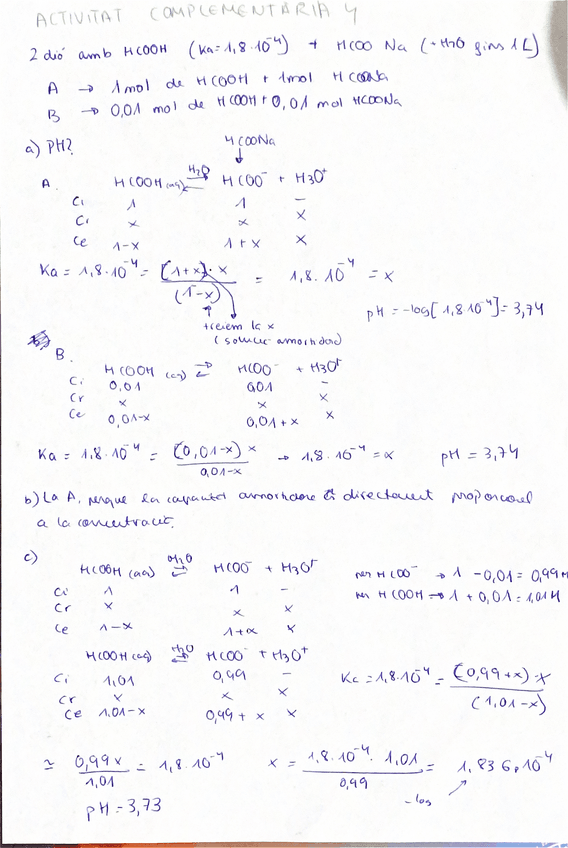 ACTIVITAT COMPLEMENTÀRIA 4
2 dió amb HCOOH (Ka=1,8·10⁻⁴) + HCOO Na (+H₂O fins 1L)
A → 1mol de HCOOH + 1mol HCOONa
B → 0,01 mol de HCOOH + 0,01 mol HCOONa
a) PH?
HCOONa
↓
A. HCOOH (aq) ⇌ H₂O HCOO⁻ + H3O⁺
Ci 1 1 -
Cr x x x
Ce 1-x 1+x x
Ka = 1,8·10⁻⁴ = [1+x]·x / (1-x) = 1,8·10⁻⁴ = x
pH = -log[1,8·10⁻⁴] = 3,74
treiem la x
(solució amortidora)
B.
HCOOH (aq) ⇌ HCOO⁻ + H3O⁺
Ci 0,01 0,01 -
Cr x x x
Ce 0,01-x 0,01+x x
Ka = 1,8·10⁻⁴ = (0,01-x) x / 0,01-x → 1,8·10⁻⁴ = x pH = 3,74
b) La A, perque la capacitat amortidora és directament proporcional
a la concentració.
c)
HCOOH (aq) ⇌ H₂O HCOO⁻ + H3O⁺
HCOO⁻ → 1 - 0,01 = 0,99M
HCOOH → 1 + 0,01 = 1,01M
Ci 1 1 -
Cr x x x
Ce 1-x 1+x x
HCOOH (aq) ⇌ H₂O HCOO⁻ + H3O⁺
Ci 1,01 0,99 -
Cr x x x
Ce 1,01-x 0,99+x x
Ka = 1,8·10⁻⁴ = (0,99+x)·x / (1,01-x)
≃ 0,99x / 1,01 = 1,8·10⁻⁴ x = 1,8·10⁻⁴·1,01 / 0,99 = 1,836·10⁻⁴
-log
pH = 3,73